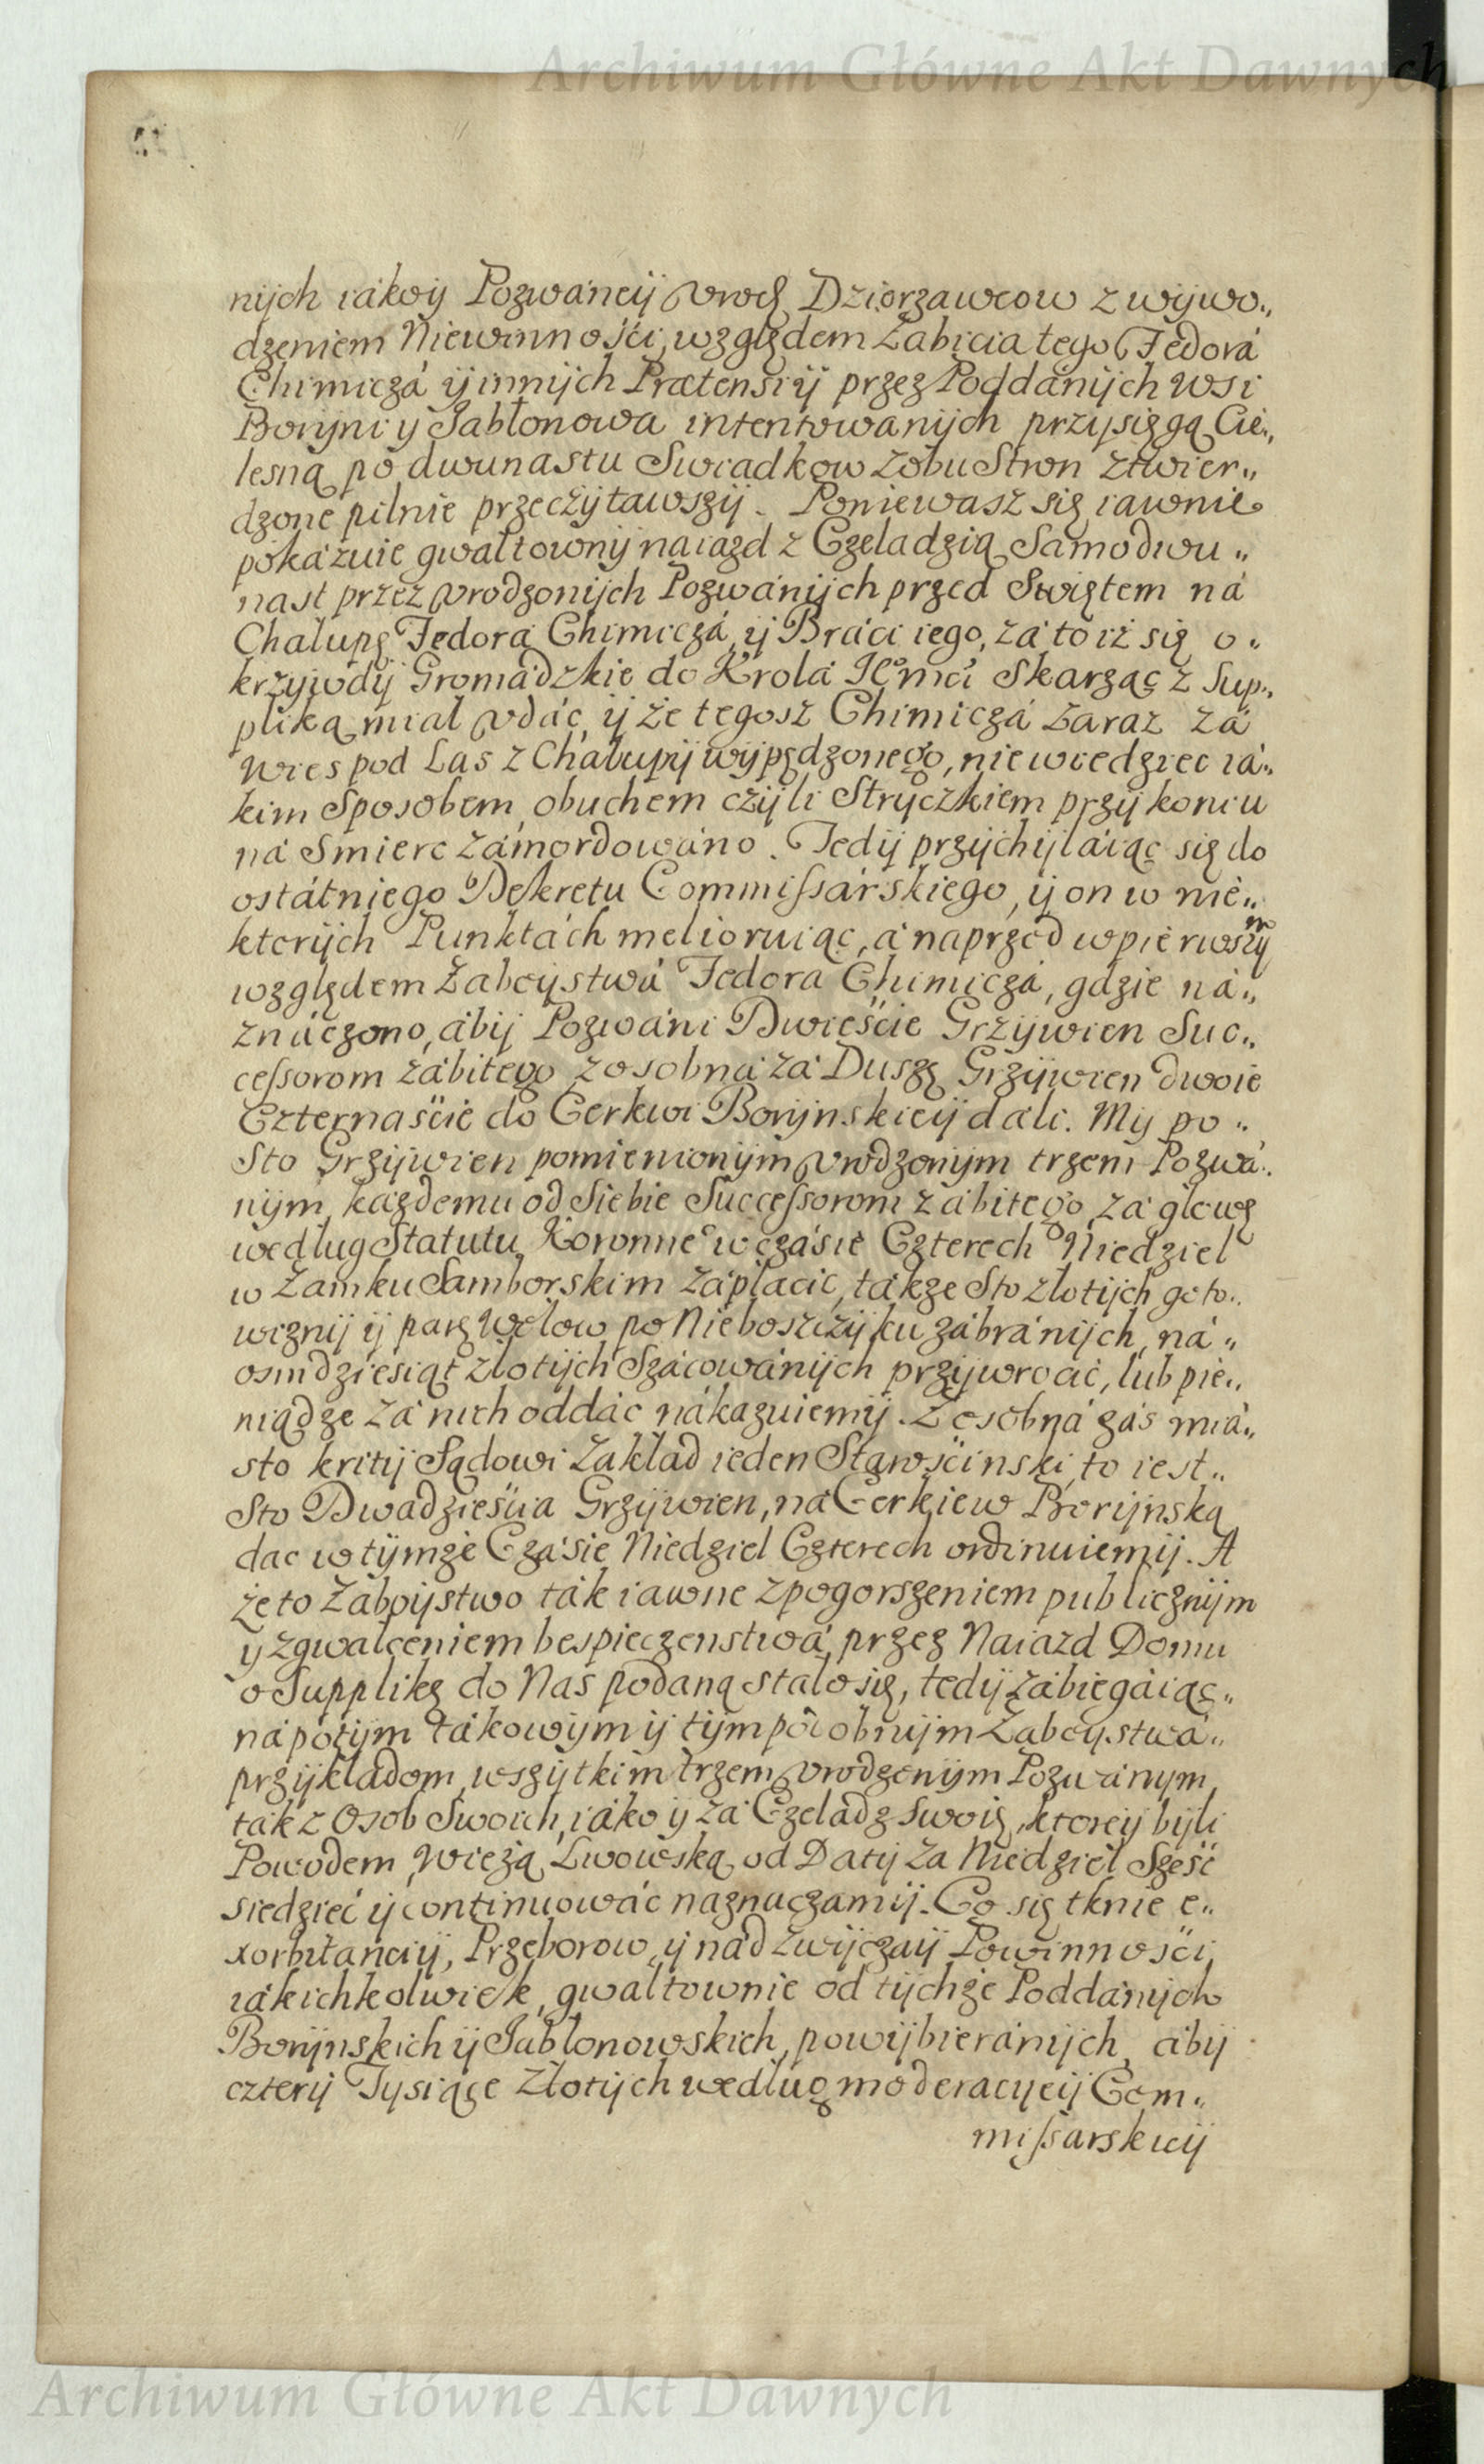 Archiwum Główne Akt Dawnych
nijch iákoij Pozwáneij Vrodz Dzierzawcow z wijwo„
dzeniem Niewinnośći, względem Zabicia tego Fedorá
Chimiczá ij innijch Prætensiij przez Poddánijch wsi
Borijni y Jabłonowa intentowanijch przijsięgą Cie„
lesną po dwunastu Swiadkow z obu Stron ztwier„
dzone pilnie przeczijtawszij. Poniewasz się iawnie
pokázuie gwałtownij naiazd z Czeladzią Samodwu„
nast przez Vrodzonijch Pozwánijch przed Swiętem ná
Chałupę Fedorá Chimiczá, ij Bráci iego, zá to iż się o„
krzijwdij Gromádzkie do Krolá JE̊mći Skarząc z Sup„
pliką miał Vdáć, ij że tegosz Chimiczá zaraz zá
wies pod Las z Chałupij wijpędzonego, niewiedziec iá„
kim Sposobem, obuchem czijli Stryczkiem przij koniu
ná Smierc zámordowáno. Tedij przijchijláiąc się do
ostátniego Dekretu Commissárskiego, ij on w nie„
ktorijch Punktách melioruiąc, á naprzod w pierwszijm
względem Zaboijstwá Fedora Chimiczá, gdzie ná„
znáczono, ábij Pozwáni Dwieśćie Grzijwien Suc„
cessorom zábitego, z osobná zá Duszę Grzijwien dwoie
Czternaśćie do Cerkwi Borijnskieij dáli. My po„
Sto Grzijwien pomienionijm Vrodzonijm trzem Pozwá„
nijm, kazdemu od Siebie Successorom zábitego, zá głowę
według Statutu Koronne͛o w czásie Czterech Niedziel
w Zamku Samborskim zápłácić, tákze Sto złotijch goto„
wiznij ij parę Wołow po Nieboszczijku zábránijch, ná„
osmdziesiąt złotijch Szácowánijch przijwroćić, lub pie„
niądze zá nich oddáć nákazuiemij. Z osobná zás miá„
sto kritij Sądowi Zakład ieden Stárośćinski, to iest„
Sto Dwadzieśćia Grzijwien, ná Cerkiew Borijnską
dac w tijmże Czásie Niedziel Czterech ordinuiemij. A
że to Záboijstwo ták iawne z pogorszeniem publicznijm
y zgwałceniem bespieczenstwá, przez Naiazd Domu
o Supplikę do Nas podaną stáło się, tedij zábiegáiąc„
nápotijm tákowijm ij tijm podobnijm Zaboijstwá„
przijkładom, wszijtkim trzem Vrodzonijm Pozwánijm,
ták z Osob Swoich, iáko ij zá Czeladz swoię, ktoreij bijli
Powodem, Wieżą Lwowską od Datij zá Niedziel Sześć
siedzieć ij continuowáć naznaczamij. Co się tknie e„
xorbitánciij, Przeborow, ij nád zwijczaij Powinnośći,
iákichkolwiek, gwałtownie od tijchże Poddánijch
Borijnskich ij Jabłonowskich, powijbieránijch, ábij
czterij Tysiące Złotijch według moderacijeij Com„
missarskieij
Archiwum Główne Akt Dawnych